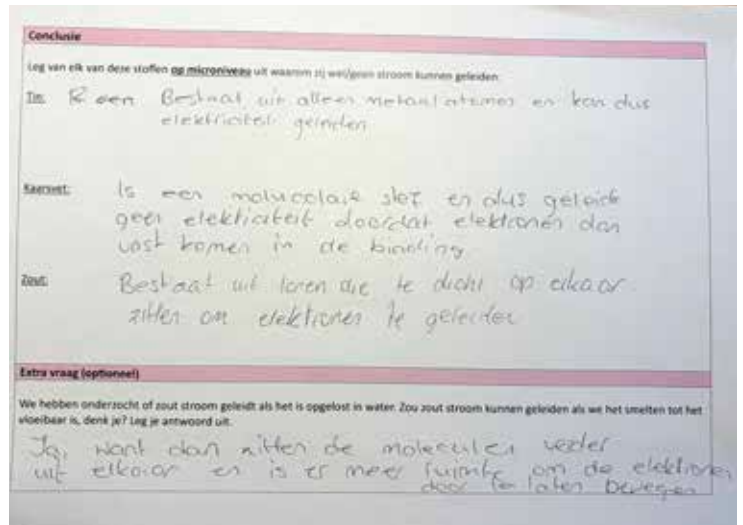 Conclusie
Leg van elk van deze stoffen op microniveau uit waarom zij wel/geen stroom kunnen geleiden
Tin: Bestaat uit alleen metaal atomen en kan dus
elektriciteit geleiden
Kaarsvet: Is een moluculaire stof en dus geleidt
geen elektriciteit doordat elektronen dan
vast komen in de binding
Zout: Bestaat uit Ionen die te dicht op elkaar
zitten om elektronen te geleiden
Extra vraag (optioneel)
We hebben onderzocht of zout stroom geleidt als het is opgelost in water. Zou zout stroom kunnen geleiden als we het smelten tot het
vloeibaar is, denk je? Leg je antwoord uit.
Ja, want dan zitten de moleculen verder
uit elkaar en is er meer ruimte om de elektronen
door te laten bewegen